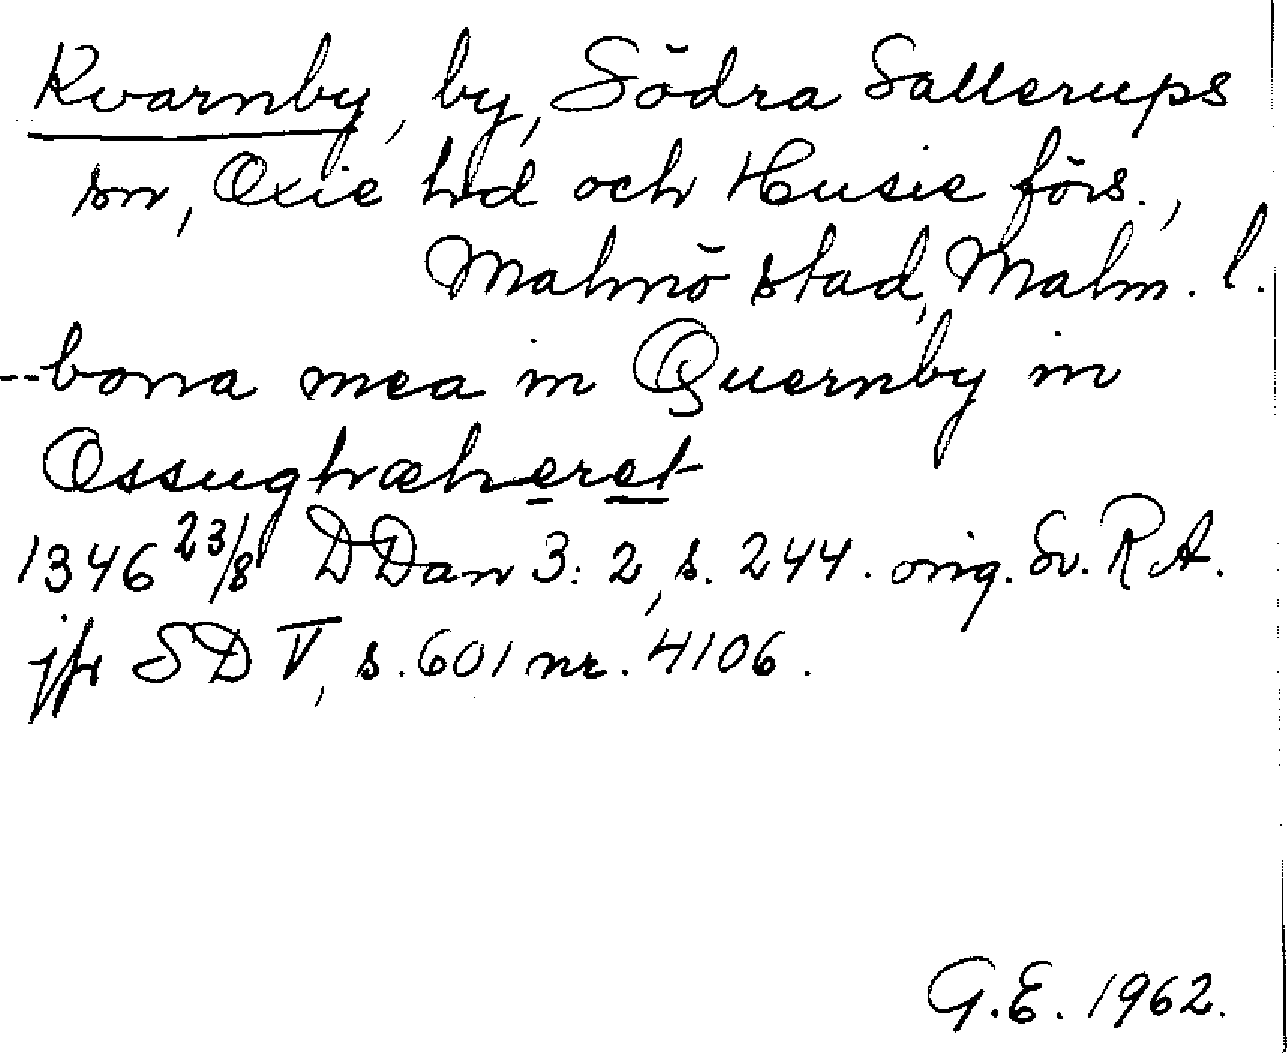 Kvarnby, by, Södra Sallerups
sn, Oxie hd och Husie förs.,
Malmö stad, Malm. l.
-- bona mea in Quernby in
Ossughæheret
1346 23/8 DDan 3: 2, s. 244. orig. Sv. R A.
jfr S D V, s. 601 nr. 4106.
G. E. 1962.